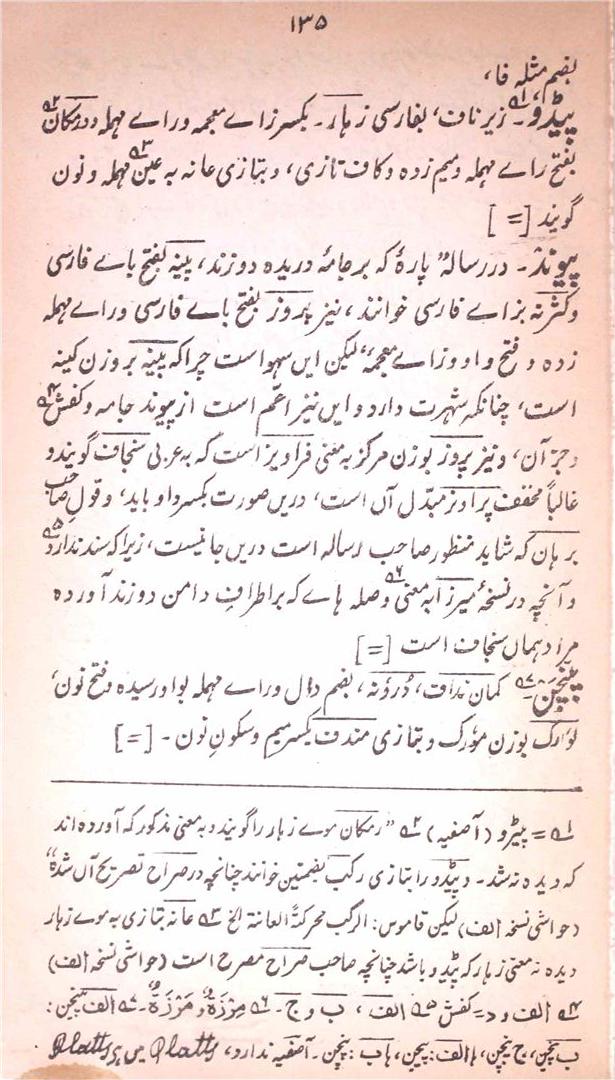 ۱۳۵
بضم مثلہ فا،
پیڈو۔ زیر ناف، بفارسی زہار۔ بکسر زاے معجمہ وراے مہملہ ودرمکان
بفتح راے مہملہ ومیم زدہ وکاف تازی، وبتازی عانہ بہ عین مہملہ ونون
گویند [=]
پیوند۔ در رسالہ "پارۂ کہ بر جامۂ دریدہ دوزند، پینہ بفتح باے فارسی
وکثرنہ بزاے فارسی خوانند، نیز پروز بفتح باے فارسی وراے مہملہ
زدہ وفتح واو وزاے معجمہ" لیکن ایں سہو است چرا کہ پینہ بر وزن کینہ
است، چنانکہ شہرت دارد وایں نیز اعم است از پیوند جامہ وکفش
وجز آں، ونیز پروز بوزن مرکز بہ معنی فراویز است کہ بہ عربی سنجاف گویند و
غالباً مخفف پراوز مبدّل آں است، دریں صورت بکسر واو باید، وقول صاحب
برہان کہ شاید منظور صاحب رسالہ است دریں جا نیست، زیرا کہ سند ندارد
وآنچہ در نسخۂ میرزا بہ معنی وصلہ ہاے کہ بر اطراف دامن دوزند آوردہ
مراد ہماں سنجاف است [=]
کمان نداف، دُرونہ، بضم دال وراے مہملہ بواو رسیدہ وفتح نون،
بوزن مورک وبتازی مندف بکسر میم وسکون نون۔ [=]
۱؎ = پیڑو (آصفیہ) ۲؎ "رمکان موے زہار را گویند وبہ معنی مذکور کہ آوردہ اند
کہ دیدہ نہ شد۔ وپیڈو را بتازی رکب بفتحتین خوانند چنانچہ در صراح تصریح آں شدہ"
(حواشی نسخہ الف) لیکن قاموس: الرکب محرکۃ العانۃ الخ ۳؎ عانہ بتازی بہ موے زہار
دیدہ نہ معنی زہار کہ پیڈو باشد چنانچہ صاحب صراح مصرح است (حواشی نسخہ الف)
۴؎ الف ود = کفش ۵؎ الف، ب وج۔ ۶؎ مِرْزَۃٌ ومَرْزَۃٌ۔ ۷؎ الف پنچن:
ب پچن، ج پنچن، ہا الف: پیچن، ہا ب: پنچن۔ آصفیہ ندارد، Platts میں ہے Platts